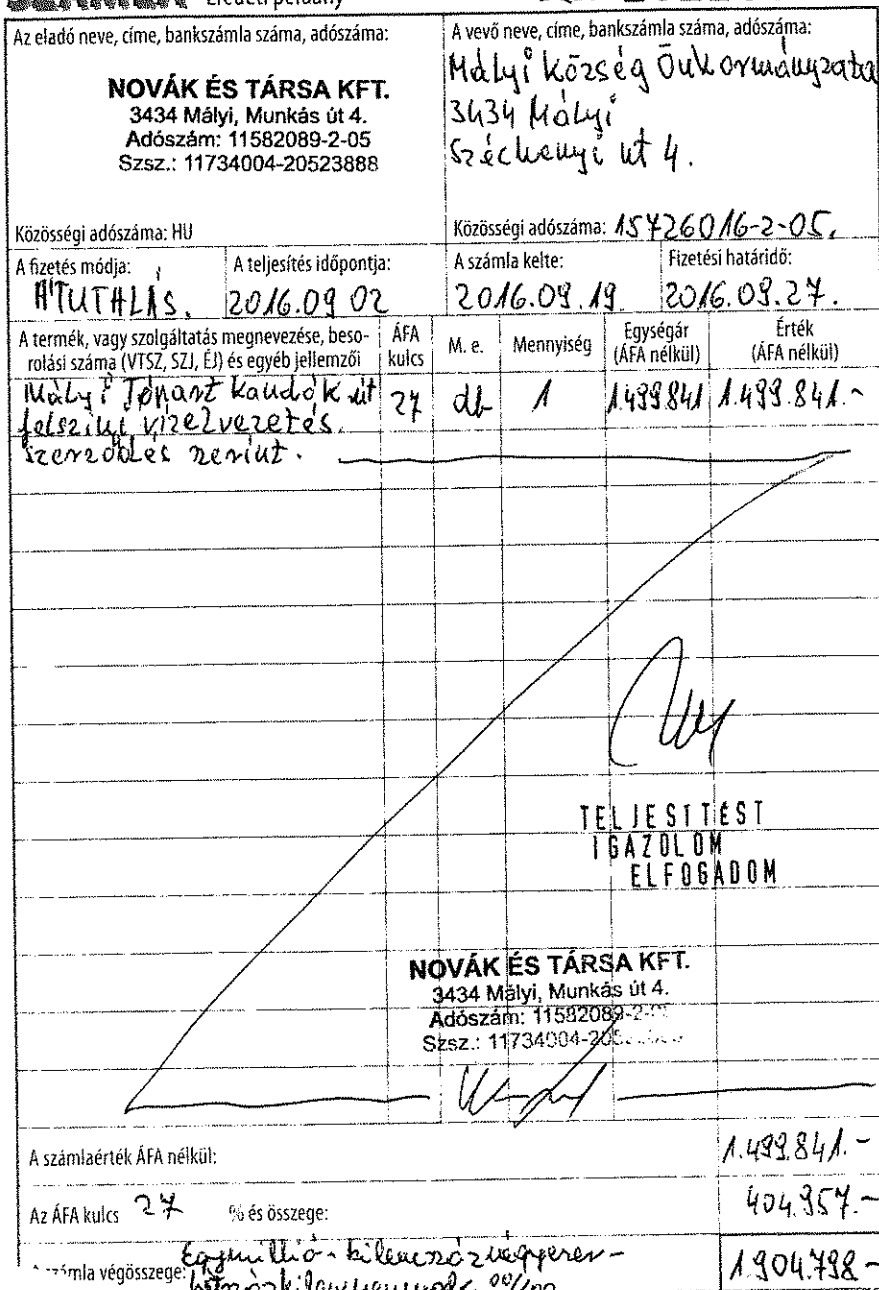 Eredeti példány
Az eladó neve, címe, bankszámla száma, adószáma:
NOVÁK ÉS TÁRSA KFT.
3434 Mályi, Munkás út 4.
Adószám: 11582089-2-05
Szsz.: 11734004-20523888
Közösségi adószáma: HU
A vevő neve, címe, bankszámla száma, adószáma:
Mályi Község Önkormányzata
3434 Mályi
Széchenyi út 4.
Közösségi adószáma: 15726016-2-05.
A fizetés módja: ÁTUTALÁS.
A teljesítés időpontja: 2016.09 02
A számla kelte: 2016.09.19.
Fizetési határidő: 2016.09.27.
A termék, vagy szolgáltatás megnevezése, beso-
rolási száma (VTSZ, SZJ, ÉJ) és egyéb jellemzői
ÁFA kulcs
M. e.
Mennyiség
Egységár (ÁFA nélkül)
Érték (ÁFA nélkül)
Mályi Tópart út 27 db 1 1.499.841 1.499.841.-
felszíni vízelvezetés.
szerződés szerint.
TELJESITTÉST
IGAZOLOM
ELFOGADOM
NOVÁK ÉS TÁRSA KFT.
3434 Mályi, Munkás út 4.
Adószám: 11582089-2-
Szsz.: 11734004-205
A számlaérték ÁFA nélkül: 1.499.841.-
Az ÁFA kulcs 27 % és összege: 404.957.-
végösszege: Egymillió-kilencszáznégyezer- 1.904.798-
00/100